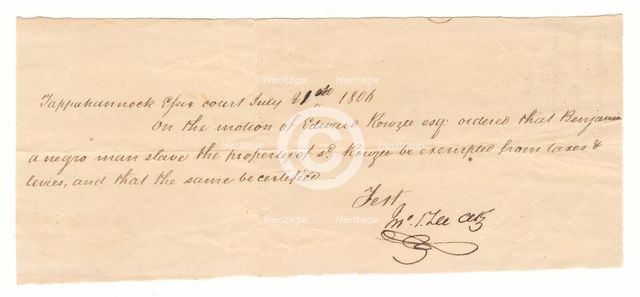 Tappahannock Essex court July 21st 1806
On the motion of Edward Rowzee esqr. ordered that Benjamin
a negro man slave the property of sd. Rowzee be exempted from taxes &
levies, and that the same be certified
Test
Jno. P. Lee Clk
Heritage
Heritage
Heritage
Heritage
Heritage
Heritage